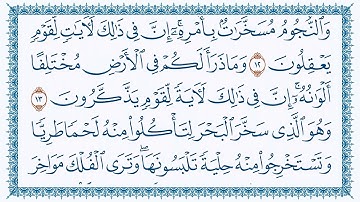 وَالنُّجُومُ مُسَخَّرَاتٌ بِأَمْرِهِ ۗ إِنَّ فِي ذَٰلِكَ لَآيَاتٍ لِقَوْمٍ
يَعْقِلُونَ ۝١٢ وَمَا ذَرَأَ لَكُمْ فِي الْأَرْضِ مُخْتَلِفًا
أَلْوَانُهُ ۗ إِنَّ فِي ذَٰلِكَ لَآيَةً لِقَوْمٍ يَذَّكَّرُونَ ۝١٣
وَهُوَ الَّذِي سَخَّرَ الْبَحْرَ لِتَأْكُلُوا مِنْهُ لَحْمًا طَرِيًّا
وَتَسْتَخْرِجُوا مِنْهُ حِلْيَةً تَلْبَسُونَهَا ۖ وَتَرَى الْفُلْكَ مَوَاخِرَ